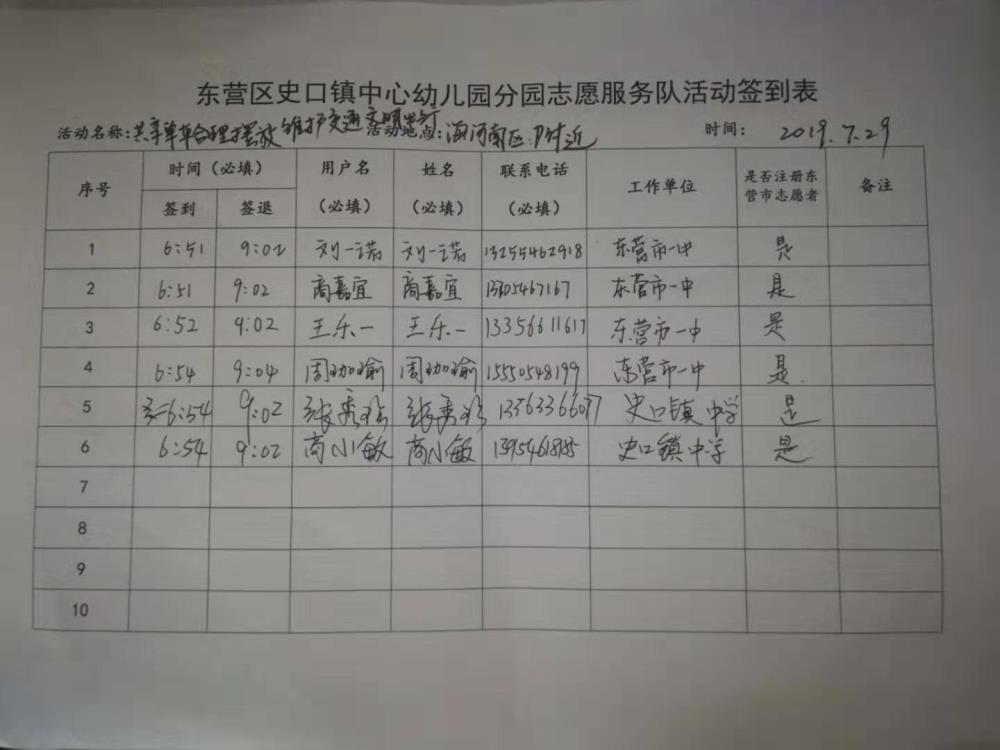 东营区史口镇中心幼儿园分园志愿服务队活动签到表
活动名称:共享单车合理摆放 维护交通文明出行 活动地点: 海河南区 附近 时间: 2019.7.29
序号 时间(必填) 用户名(必填) 姓名(必填) 联系电话(必填) 工作单位 是否注册东营市志愿者 备注
签到 签退
1 6:51 9:02 刘一诺 刘一诺 13255462918 东营市一中 是
2 6:51 9:02 商嘉宜 商嘉宜 东营市一中 是
3 6:52 9:02 王乐一 王乐一 13356611617 东营市一中 是
4 6:54 9:04 周珈瑜 周珈瑜 15550548199 东营市一中 是
5 6:54 9:02 张秀 张秀 史口镇中学 是
6 6:54 9:02 商小敏 商小敏 史口镇中学 是
7
8
9
10